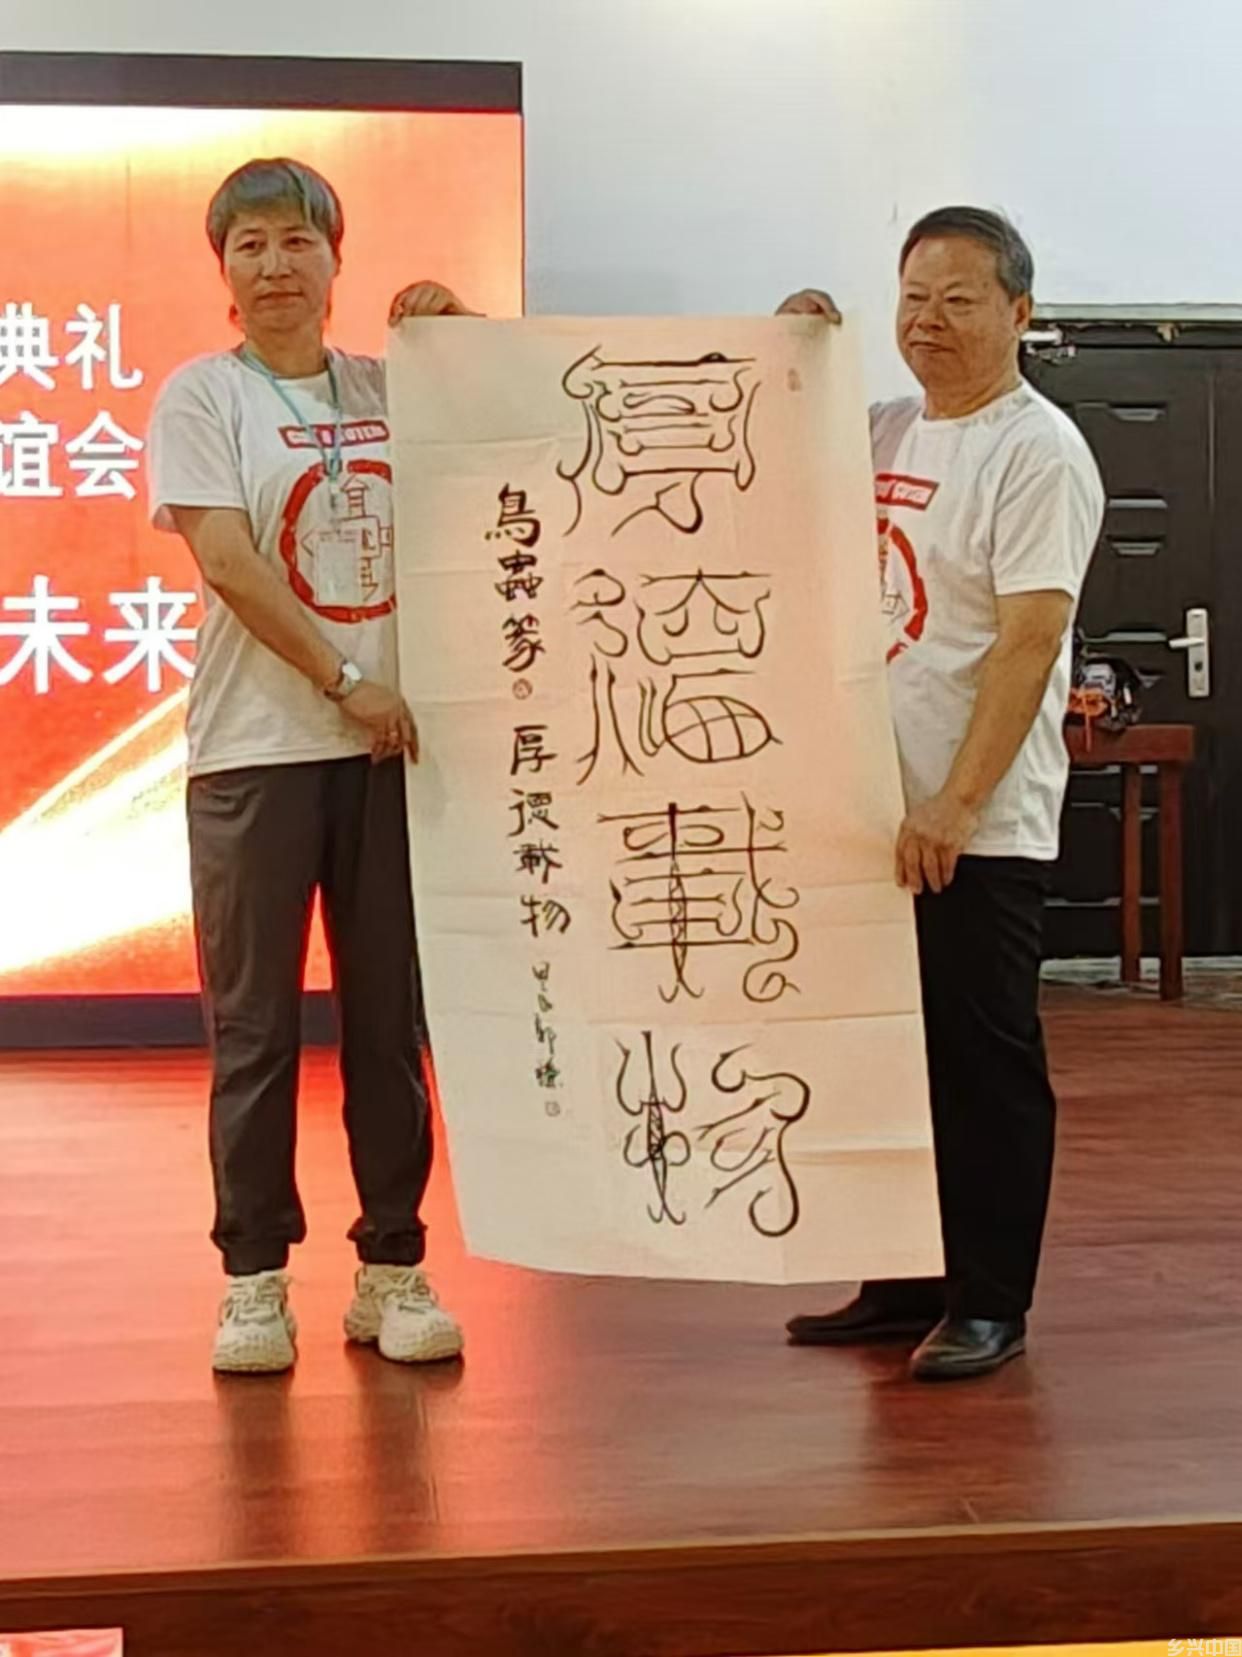 典礼
谊会
未来
厚德载物
鳥蟲篆
厚德載物
乡兴中国